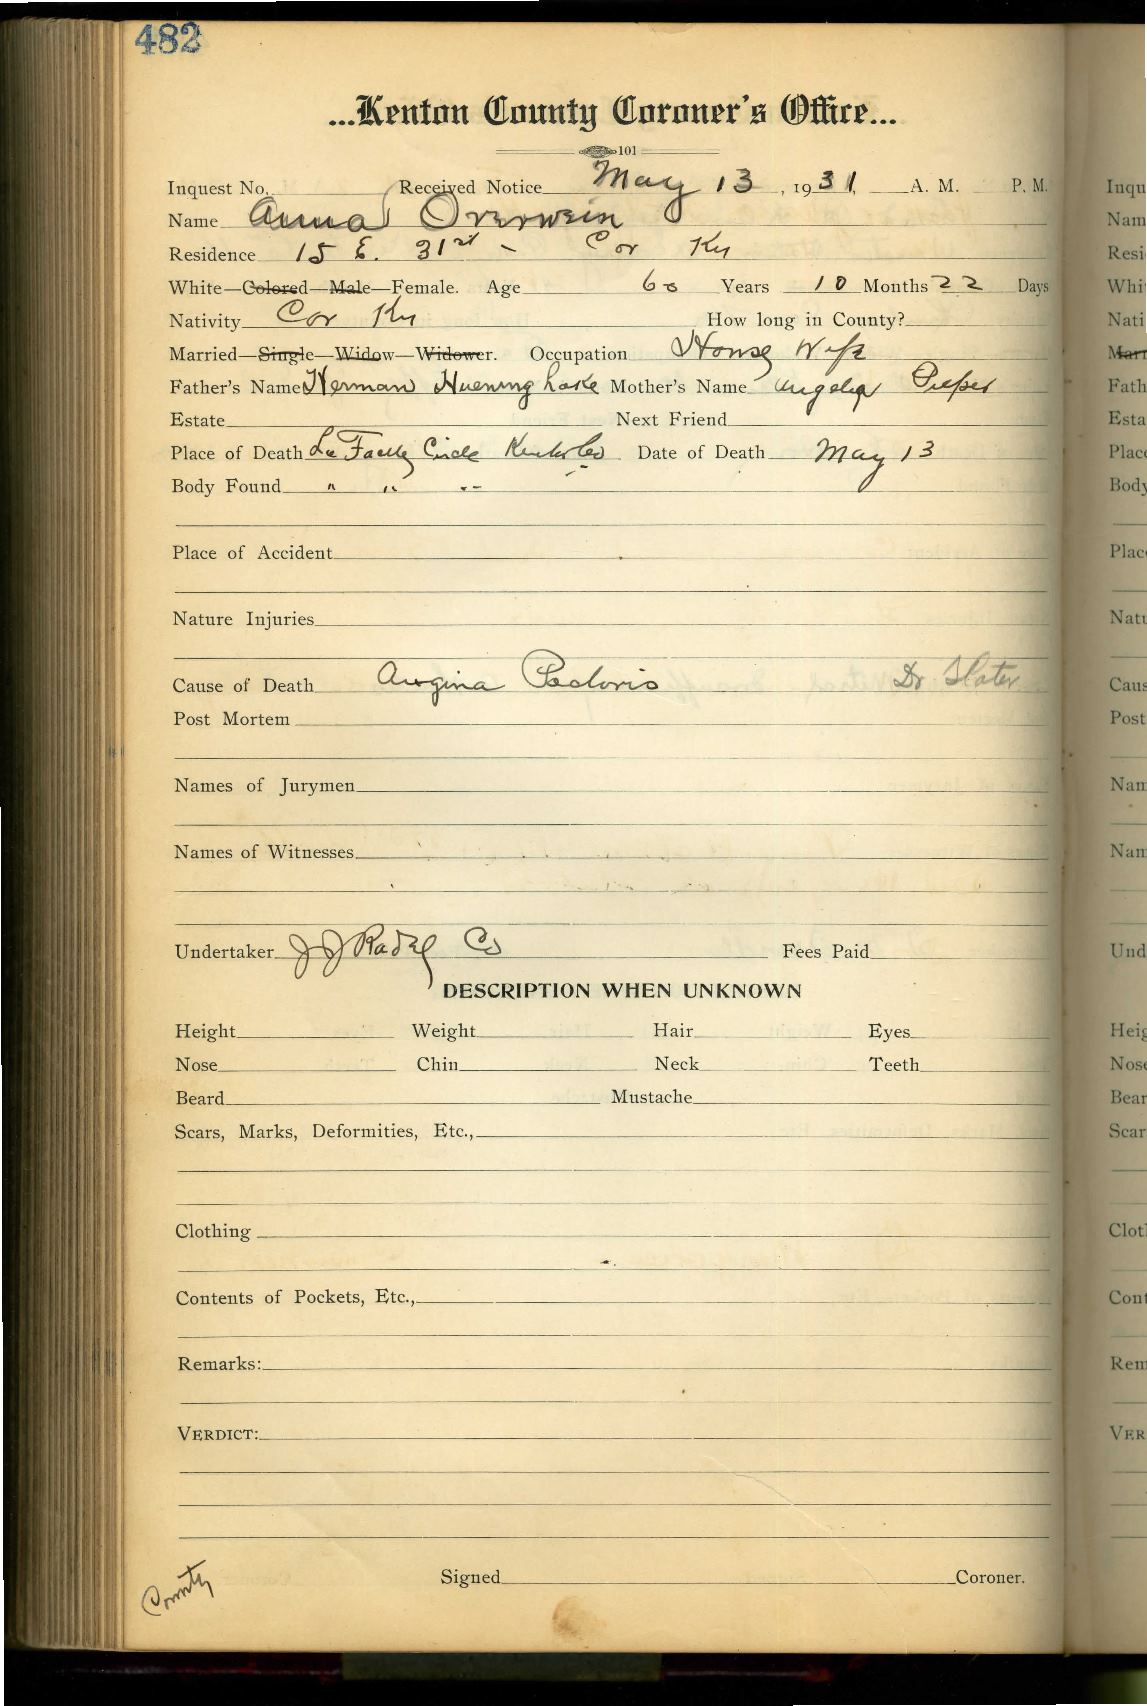 482
...Kenton County Coroner's Office...
101
Inquest No. Received Notice May 13, 1931, A. M. P. M.
Name Anna Overwein
Residence 15 E. 31st - Cov Ky
White—Colored—Male—Female. Age 60 Years 10 Months 22 Days
Nativity Cov Ky How long in County?
Married—Single—Widow—Widower. Occupation House Wife
Father's Name Herman Huening hake Mother's Name Angela Pieper
Estate Next Friend
Place of Death Circle Kenton Co Date of Death May 13
Body Found " " "
Place of Accident
Nature Injuries
Cause of Death Angina Pectoris Dr Slater
Post Mortem
Names of Jurymen
Names of Witnesses
Undertaker J J Radel Co Fees Paid
DESCRIPTION WHEN UNKNOWN
Height Weight Hair Eyes
Nose Chin Neck Teeth
Beard Mustache
Scars, Marks, Deformities, Etc.,
Clothing
Contents of Pockets, Etc.,
Remarks:
VERDICT:
Signed Coroner.
County
Inqu
Nam
Resi
Whi
Nati
Marr
Fath
Esta
Place
Body
Place
Natu
Caus
Post
Nam
Nam
Und
Heig
Nose
Bear
Scar
Clot
Cont
Rem
VER